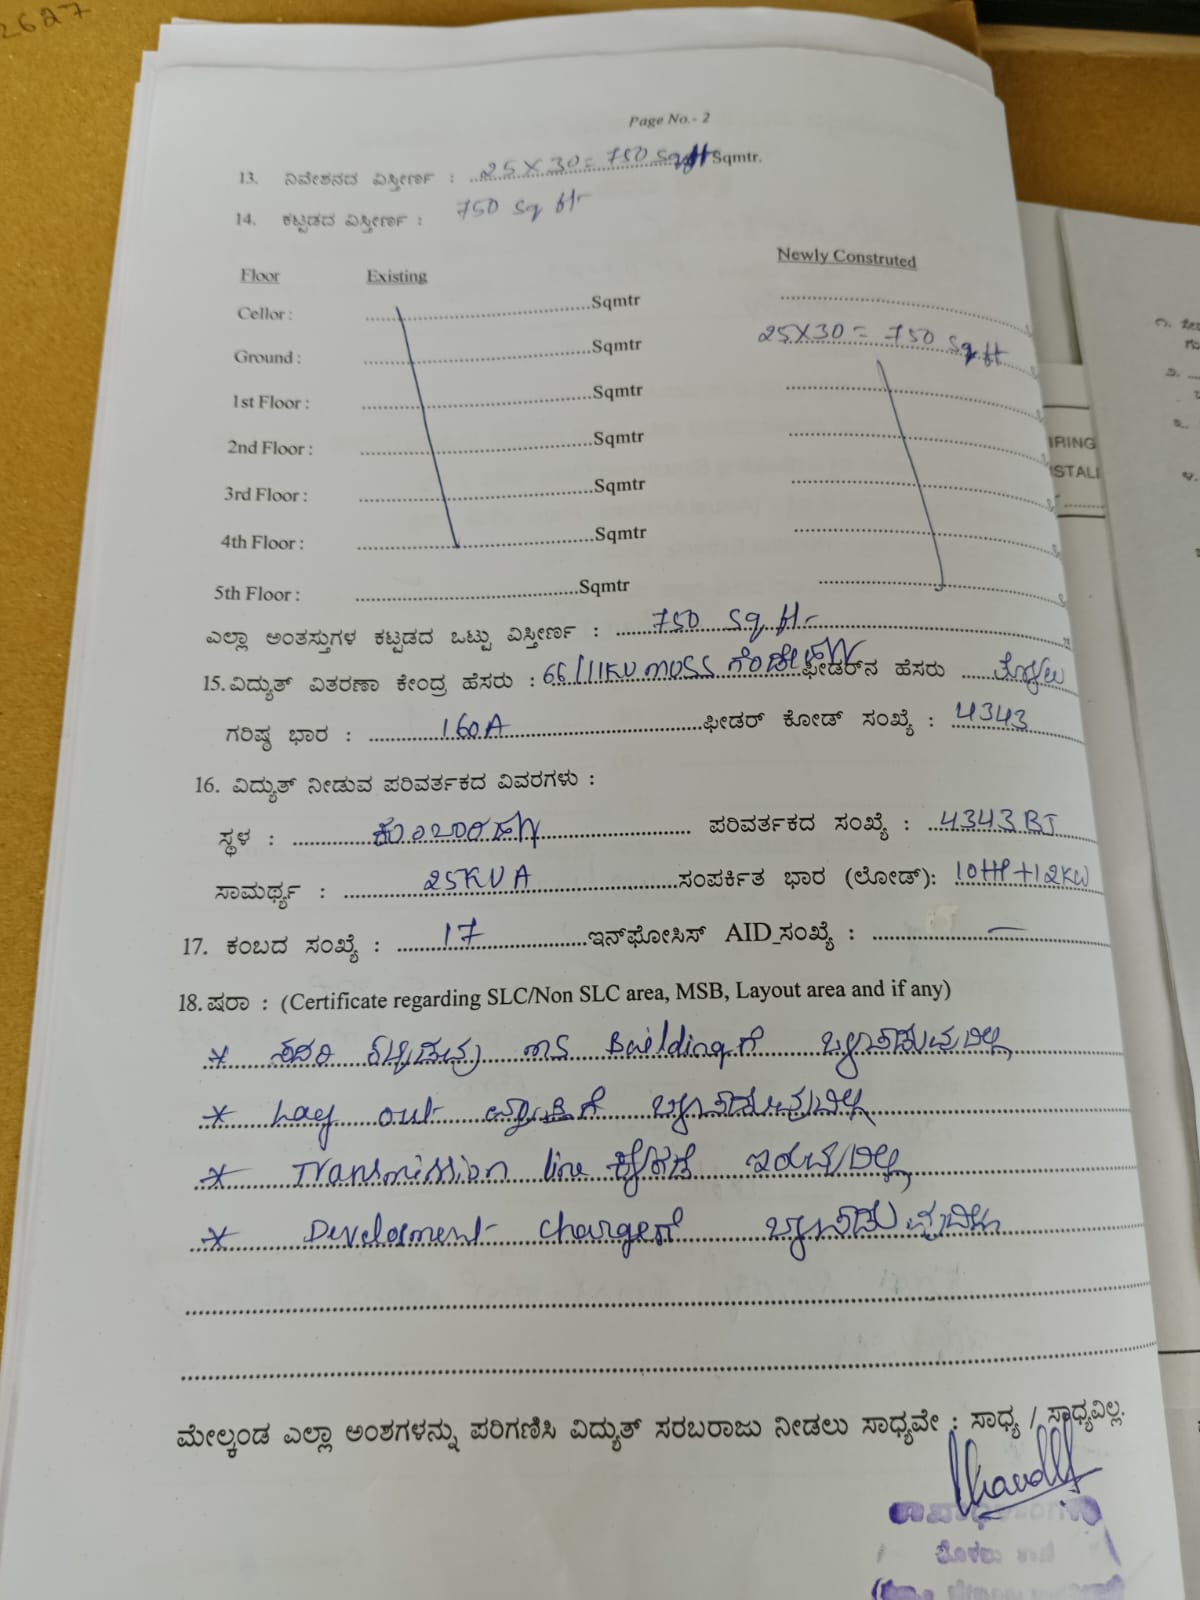 2627
Page No.- 2
13. ನಿವೇಶನದ ವಿಸ್ತೀರ್ಣ : 25 X 30 = 750 Sqft Sqmtr.
14. ಕಟ್ಟಡದ ವಿಸ್ತೀರ್ಣ : 750 Sq ft
Floor Existing Newly Construted
Cellor : Sqmtr
Ground : Sqmtr 25X30 = 750 Sqft
1st Floor : Sqmtr
2nd Floor : Sqmtr
3rd Floor : Sqmtr
4th Floor : Sqmtr
5th Floor : Sqmtr
ಎಲ್ಲಾ ಅಂತಸ್ತುಗಳ ಕಟ್ಟಡದ ಒಟ್ಟು ವಿಸ್ತೀರ್ಣ : 750 Sq ft
15. ವಿದ್ಯುತ್ ವಿತರಣಾ ಕೇಂದ್ರ ಹೆಸರು : 66/11KV MUSS ಫೀಡರ್‌ನ ಹೆಸರು
ಗರಿಷ್ಠ ಭಾರ : 160A ಫೀಡರ್ ಕೋಡ್ ಸಂಖ್ಯೆ : 4343
16. ವಿದ್ಯುತ್ ನೀಡುವ ಪರಿವರ್ತಕದ ವಿವರಗಳು :
ಸ್ಥಳ : ಪರಿವರ್ತಕದ ಸಂಖ್ಯೆ : 4343 BJ
ಸಾಮರ್ಥ್ಯ : 25KVA ಸಂಪರ್ಕಿತ ಭಾರ (ಲೋಡ್): 10HP+12KW
17. ಕಂಬದ ಸಂಖ್ಯೆ : 17 ಇನ್‌ಫೋಸಿಸ್ AID ಸಂಖ್ಯೆ : —
18. ಷರಾ : (Certificate regarding SLC/Non SLC area, MSB, Layout area and if any)
* ಸದರಿ ಕಟ್ಟಡವು MS Buildingಗೆ ಒಳಪಡುವುದಿಲ್ಲ
* Lay out ವ್ಯಾಪ್ತಿಗೆ ಒಳಪಡುವುದಿಲ್ಲ
* Transmission line ಕೆಳಗಡೆ ಇರುವುದಿಲ್ಲ
* Develoment chargeಗೆ ಒಳಪಡುವುದಿಲ್ಲ
ಮೇಲ್ಕಂಡ ಎಲ್ಲಾ ಅಂಶಗಳನ್ನು ಪರಿಗಣಿಸಿ ವಿದ್ಯುತ್ ಸರಬರಾಜು ನೀಡಲು ಸಾಧ್ಯವೇ : ಸಾಧ್ಯ / ಸಾಧ್ಯವಿಲ್ಲ.
IRING
STALI